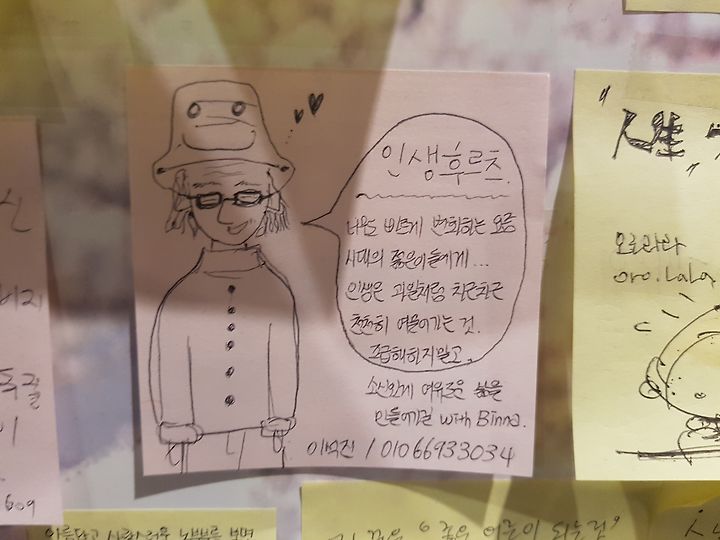 인생후르츠.
너무 빠르게 변화하는 요즘
시대의 젊은이들에게...
인생은 과일처럼 차근차근
천천히 여물어가는 것.
조급해하지말고,
소신있게 여유로운 삶을
만들어가길 with Binna.
이석진 / 010 66933034
"人生
오로라라
oro.lala
아름답고 사랑스러운 노부부를 보며
"좋은 어른이 되는길"
609